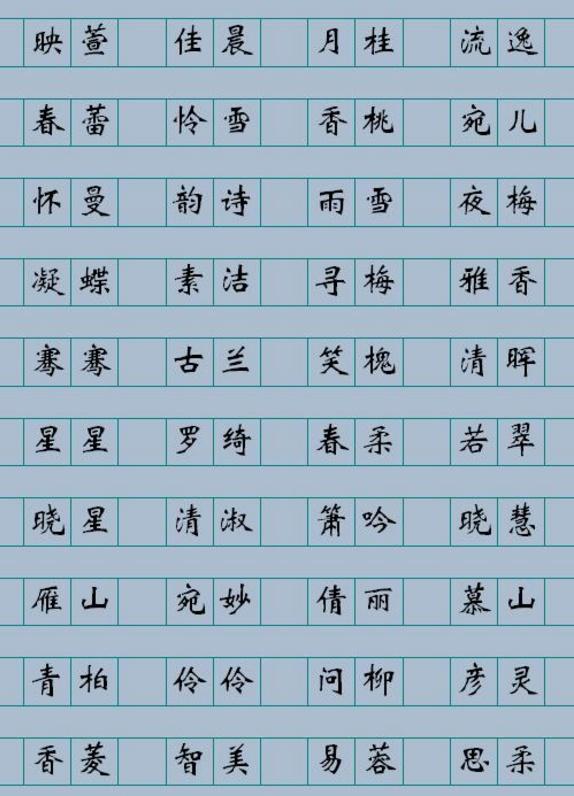 映萱 佳晨 月桂 流逸
春蕾 怜雪 香桃 宛儿
怀曼 韵诗 雨雪 夜梅
凝蝶 素洁 寻梅 雅香
骞骞 古兰 笑槐 清晖
星星 罗绮 春柔 若翠
晓星 清淑 箫吟 晓慧
雁山 宛妙 倩丽 慕山
青柏 伶伶 问柳 彦灵
香菱 智美 易蓉 思柔